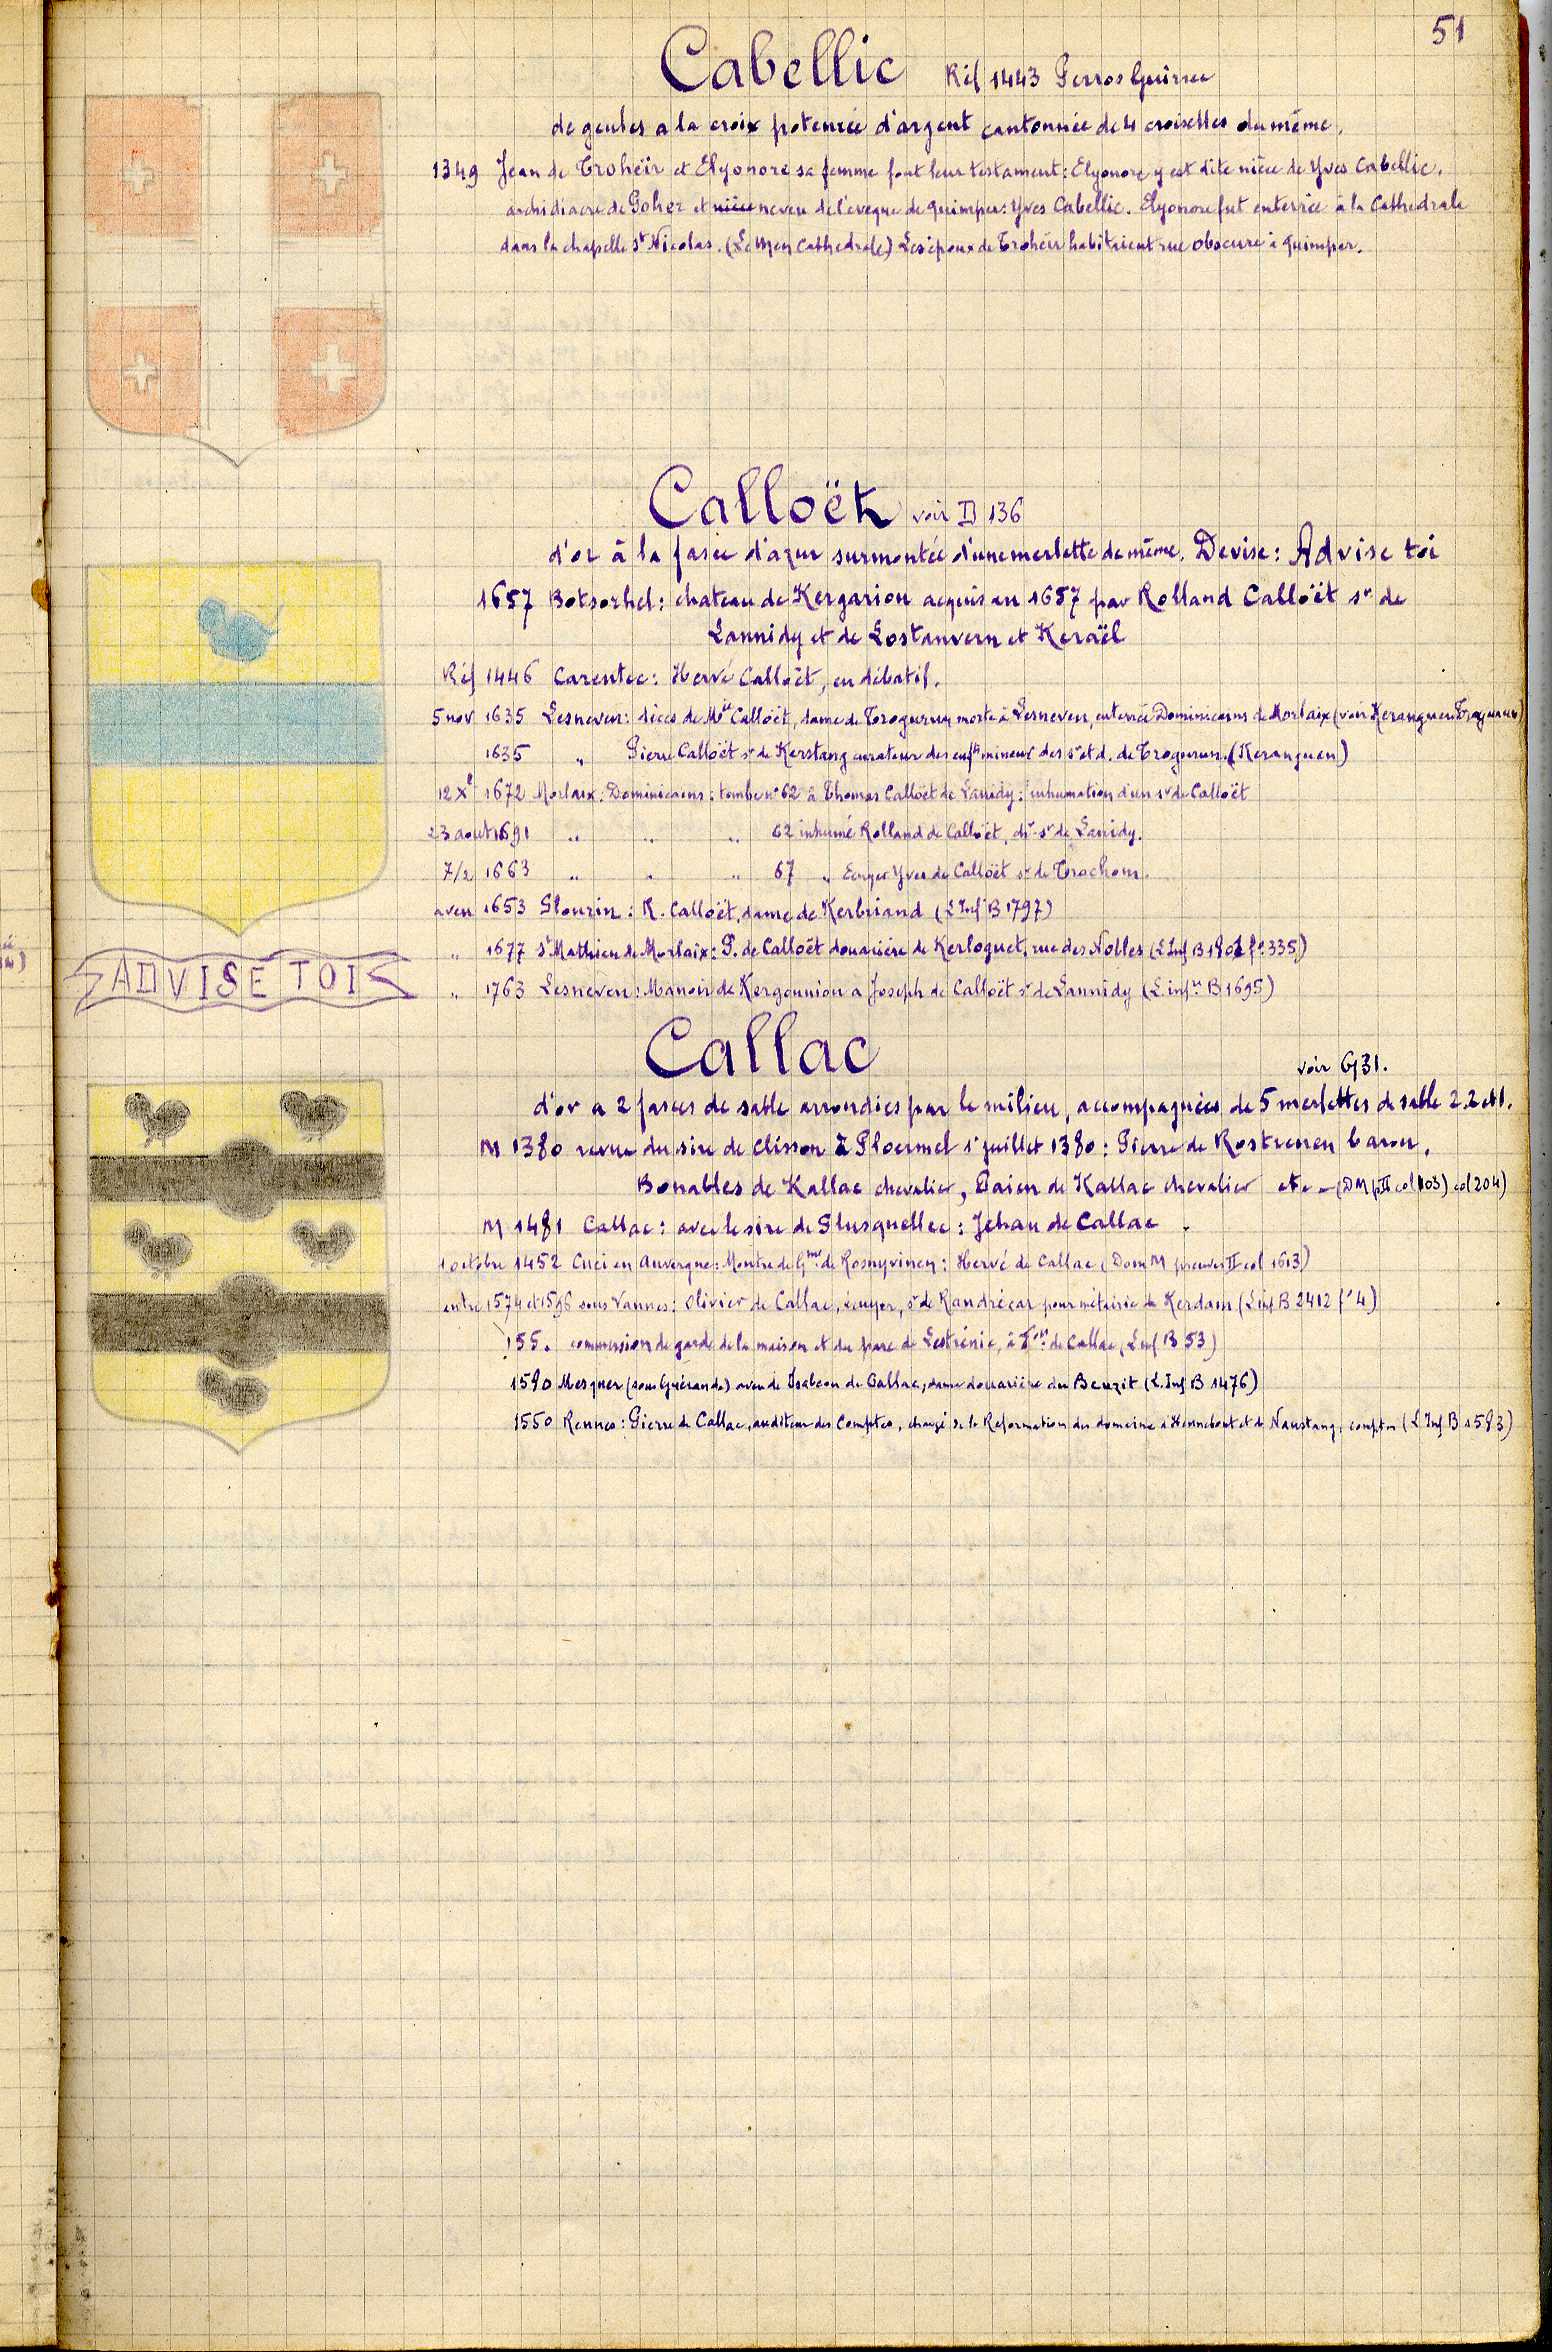 51
Cabellic Réf 1443 Perros Guirec
de geules a la croix potencée d'argent cantonnée de 4 croisettes du même.
1349 Jean de Trohëir et Elyonore sa femme font leur testament: Elyonore y est dite nièce de Yves Cabellic,
archidiacre de Poher et nièce neveu de l'eveque de Quimper: Yves Cabellic. Elyonore fut enterrée à la Cathedrale
dans la chapelle St Nicolas. (Le Men Cathedrale) Les époux de Trohëir habitaient rue obscure à Quimper.
Calloët voir D 136
d'or à la fasce d'azur surmontée d'une merlette de même. Devise: Advise toi
1657 Botsorhel: chateau de Kergarion acquis en 1657 par Rolland Calloët sr de
Lannidy et de Lostanvern et Keraël
Réf 1446 Carentec: Hervé Calloët, en débatif.
5 nov 1635 Lesneven: décès de Melle Calloët, dame de Trogurun morte à Lesneven, enterrée Dominicains de Morlaix (voir Keranguen Trogurun)
1635 " Pierre Calloët sr de Kerstang curateur des enfts mineurs des sr et d. de Trogurun. (Keranguen)
12 Xe 1672 Morlaix. Dominicains: tombe n° 62 à Thomas Calloët de Lanidy: inhumation d'un sr de Calloët
23 aout 1691 " " " 62 inhumé Rolland de Calloët, chr sr de Lanidy.
7/2 1663 " " " 67 " Ecuyer Yves de Calloët sr de Trochom.
aveu 1653 Plourin: R. Calloët, dame de Kerbriand (L Infre B 1797)
" 1677 St Mathieu de Morlaix: P. de Calloët douairière de Kerloguet, rue des Nobles (L Inf B 1801 f° 335)
" 1763 Lesneven: Manoir de Kergounion a Joseph de Calloët sr de Lannidy (L. infre B 1695)
ADVISE TOI
Callac
voir G 31.
d'or a 2 fasces de sable arrondies par le milieu, accompagnées de 5 merlettes de sable 2.2 et 1.
M 1380 revue du sire de Clisson à Ploermel 1r juillet 1380: Pierre de Rostrenen baron,
Bonables de Kallac chevalier, Paien de Kallac chevalier etc _ (DM p II col 103) col (204)
M 1481 Callac: avec le sire de Plusquellec: Jehan de Callac.
1 octobre 1452 Cuci en Auvergne: Montre de Gme de Rosnyvinen: Hervé de Callac (Dom M preuves II col 1613)
entre 1574 et 1596 sous Vannes: Olivier de Callac, écuyer, sr de Randrécar pour métairie de Kerdam (L inf B 2412 f° 4)
155. commission de garde de la maison et du parc de Lestrénic, à Fois de Callac (L inf B 53)
1580 Mesquer (sous Guérande) aveu de Isabeau de Callac, dame douairière du Beuzit (L. Inf B 1476)
1550 Rennes: Pierre de Callac, auditeur des Comptes, chargé de la Reformation du domaine d'Hennebout et de Nanstang, comptes (L Inf B 1583)